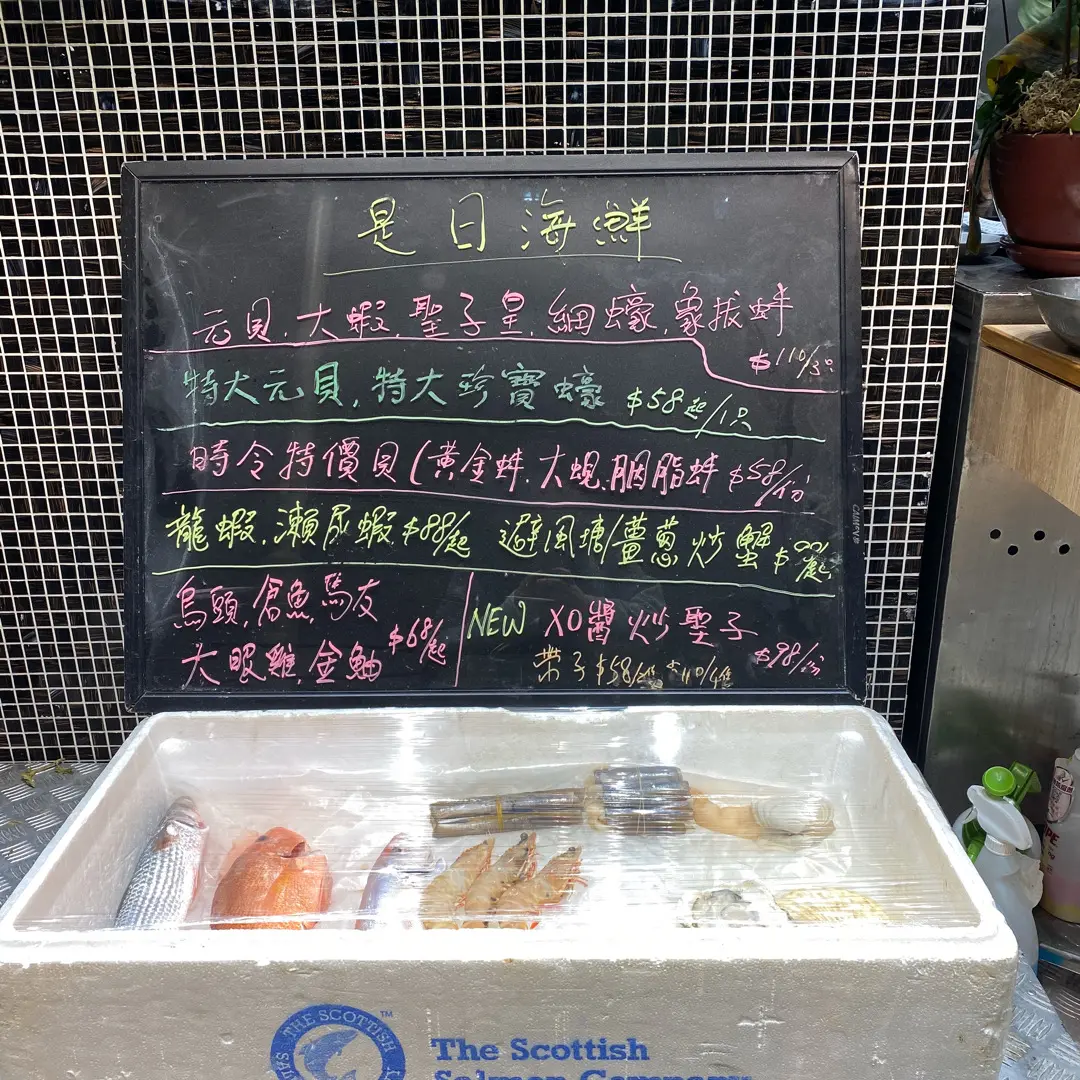 是日海鮮
元貝.大蝦.聖子皇.細蠔.象拔蚌
$110/3只
特大元貝,特大珍寶蠔 $58起/1只
時令特價貝(黃金蚌.大蜆.胭脂蚌 $58/份
龍蝦.瀨尿蝦 $88/起 避風塘/薑蔥炒蟹 $ /起
烏頭,倉魚,馬友
大眼雞,金鮋 $68/起
NEW XO醬炒聖子
$98/份
帶子 $58/2隻 $110/4隻
CANIVE
THE SCOTTISH
The Scottish
Salmon Company